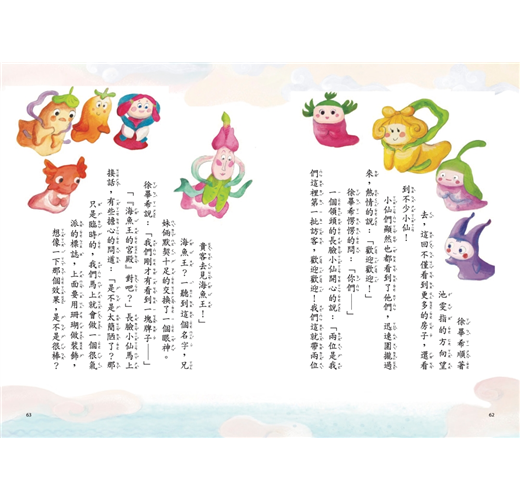 徐畢希順著
池雯指的方向望
去，這回不僅看到更多的房子，還看
到不少小仙！
小仙們顯然也都看到了他們，迅速圍攏過
來，熱情的說：「歡迎歡迎！」
徐畢希愣愣的問：「你們——」
一個領頭的長臉小仙開心的說：「兩位是我
們這裡第一批訪客，歡迎歡迎！我們這就帶兩位
62
貴客去見海魚王！」
海魚王？一聽到這個名字，兄
妹倆默契十足的交換了一個眼神。
徐畢希說：「我們剛才有看到一塊牌子——」
「『海魚王的宮殿』對吧？」長臉小仙馬上
接話，有些擔心的問道：「是不是太簡陋了？那
只是臨時的，我們馬上就會做一個很氣
派的標誌，上面要用珊瑚做裝飾，
想像一下那個效果，是不是很棒？
63